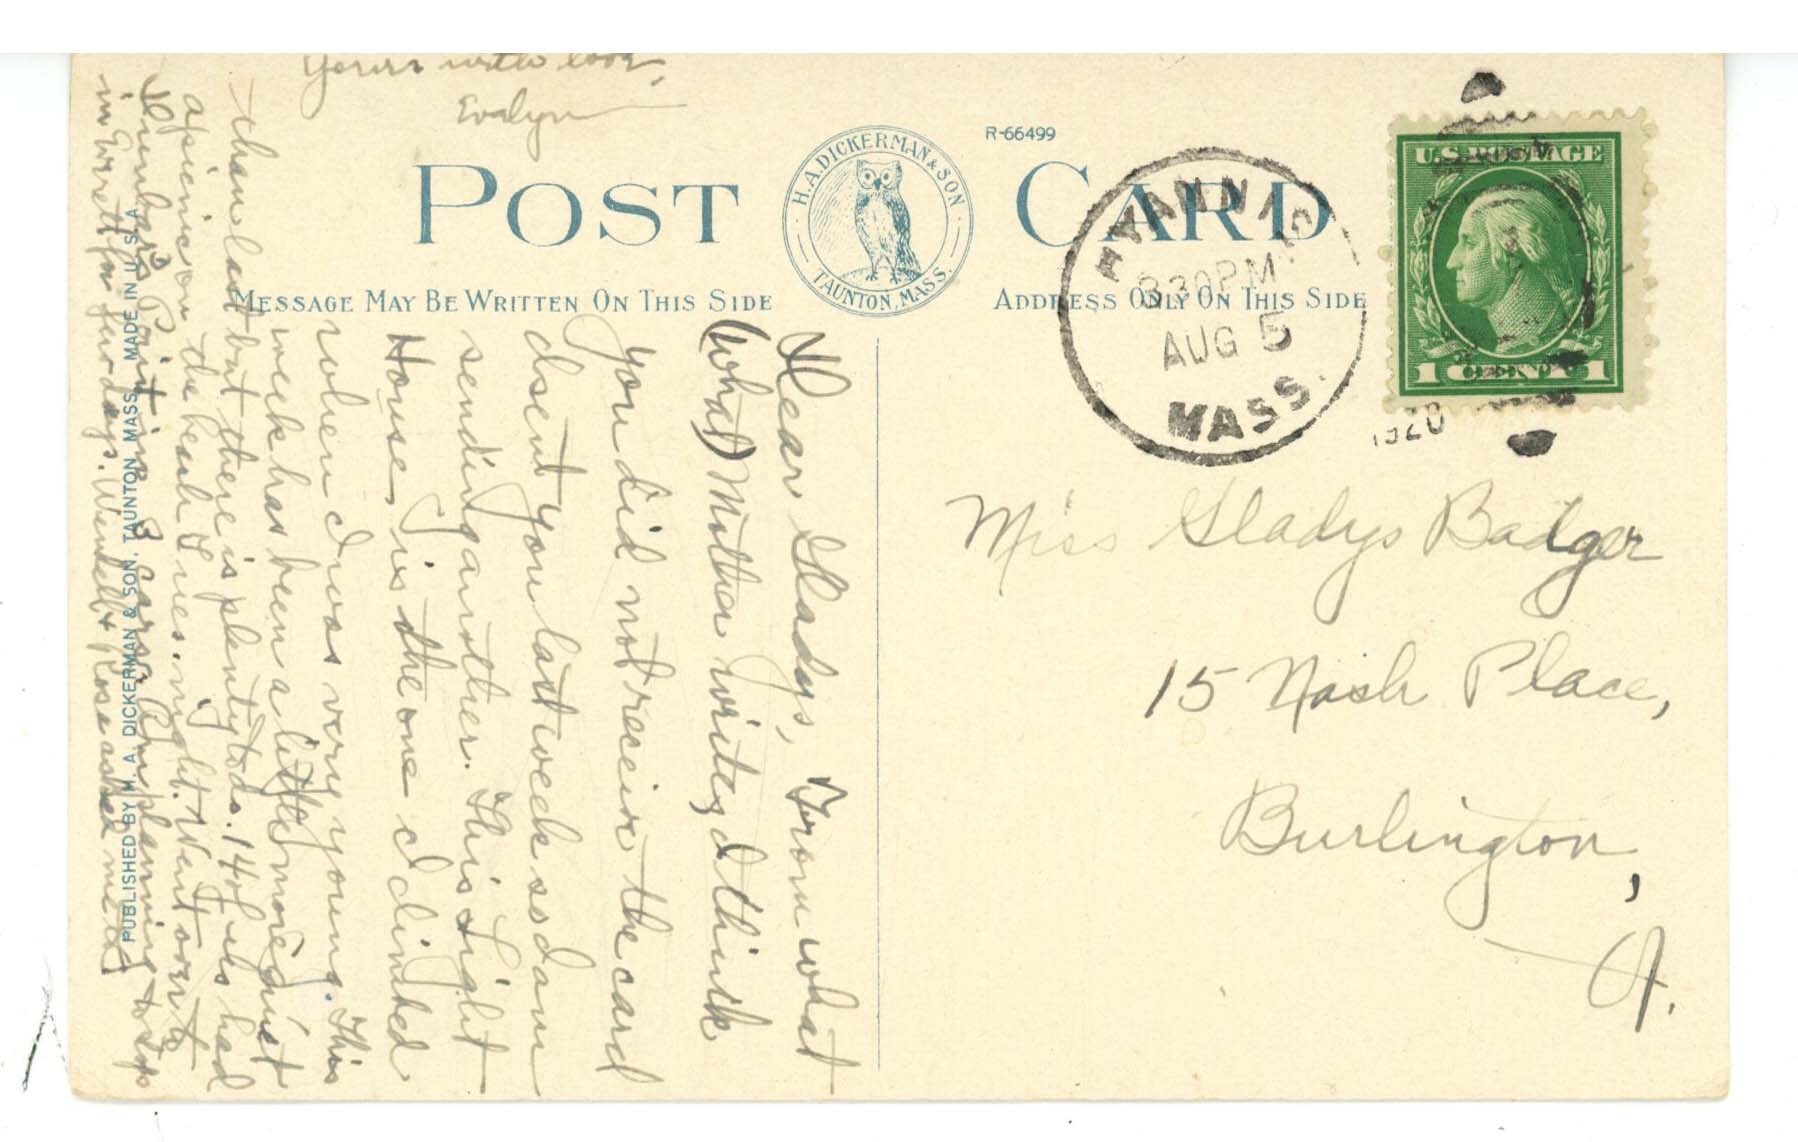 R-66499
POST CARD
H.A. DICKERMAN & SON
TAUNTON, MASS.
MESSAGE MAY BE WRITTEN ON THIS SIDE
ADDRESS ONLY ON THIS SIDE
HYANNIS
830PM
AUG 5
MASS.
1920
U.S. POSTAGE
1 CENT 1
Miss Gladys Badger
15 Nash Place,
Burlington,
Vt.
Dear Gladys, From what
(what) Mother writes I think
you did not receive the card
I sent you last week so I am
sending another. This Light
House is the one I climbed
when I was very young. This
week has been a little more quiet
than last but there is plenty to do. 14 of us had
a picnic on the beach Tues. night. Went over to
Point in 3 cars. Am planning to stop
in for few days. Wendell & Rose asked me to
Yours with love,
Evalyn
PUBLISHED BY H. A. DICKERMAN & SON, TAUNTON, MASS. MADE IN U.S.A.